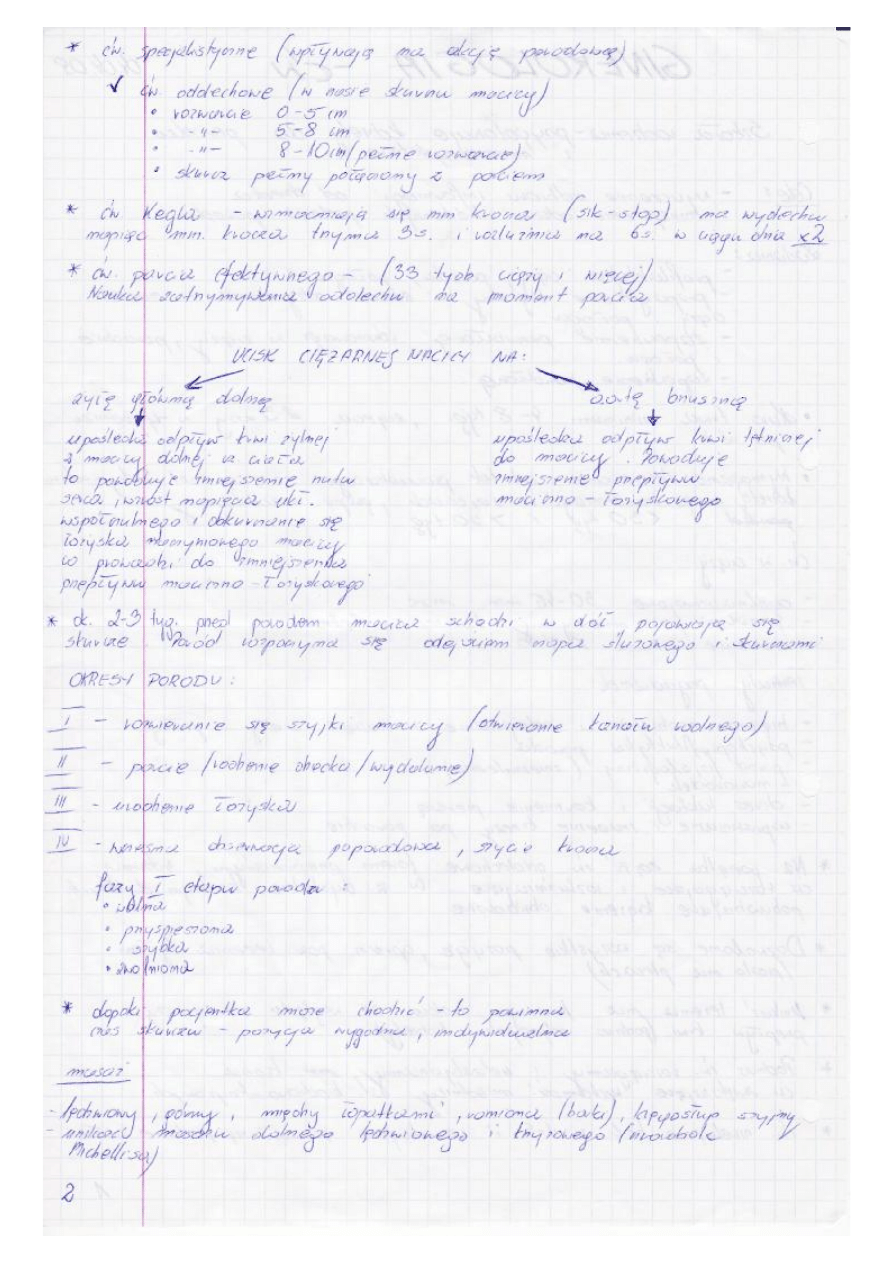 * ćw. specjalistyczne (wpływają na akcję porodową)
✓ ćw. oddechowe (w czasie skurczu macicy)
• rozwarcie 0-5 cm
• -"- 5-8 cm
• -"- 8-10cm (pełne rozwarcie)
• skurcz pełny połączony z parciem
* ćw. Kegla - wzmacniają się mm krocza (sik-stop) na wydechu
napięcie mm. krocza trzyma 3s. i rozluźnia na 6s. w ciągu dnia x2
* ćw. parcia efektywnego - (33 tydz ciąży i więcej)
Nauka zatrzymywania oddechu na moment parcia
UCISK CIĘŻARNEJ MACICY NA:
żyłę główną dolną
aortę brzuszną
upośledza odpływ krwi żylnej
z macicy dolnej cz ciała
to powoduje zmniejszenie rzutu
serca, wzrost napięcia ukł.
współczulnego i obkurczanie się
łożyska naczyniowego macicy
co prowadzi do zmniejszenia
przepływu maciczno-łożyskowego
upośledza odpływ krwi tętniczej
do macicy. Powoduje
zmniejszenie przepływu
maciczno-łożyskowego
* ok. 2-3 tyg. przed porodem macica schodzi w dół pojawiają się
skurcze. Poród rozpoczyna się odejściem czopa śluzowego i skurczami
OKRESY PORODU:
I - rozwieranie się szyjki macicy (otwieranie kanału rodnego)
II - parcie /rodzenie dziecka/wydalanie)
III - urodzenie łożyska
IV - wczesna obserwacja poporodowa, szycie krocza
fazy I etapu porodu:
• wolna
• przyspieszona
• szybka
• zwolniona
* dopóki pacjentka może chodzić - to powinna
czas skurczów - pozycja wygodna, indywidualna
masaż
- lędźwiowy, górny, między łopatkami, ramiona (barki), kręgosłup szyjny
- unikać masażu dolnego lędźwiowego i krzyżowego (
Michellisa)
2